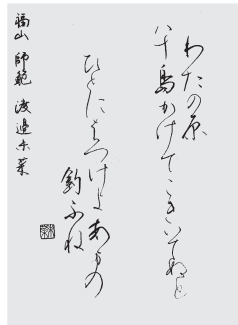 わたの原
八十島かけてこきいてぬと
ひとにはつけよあまの
釣ふね
福山 師範 渡邉朱菜